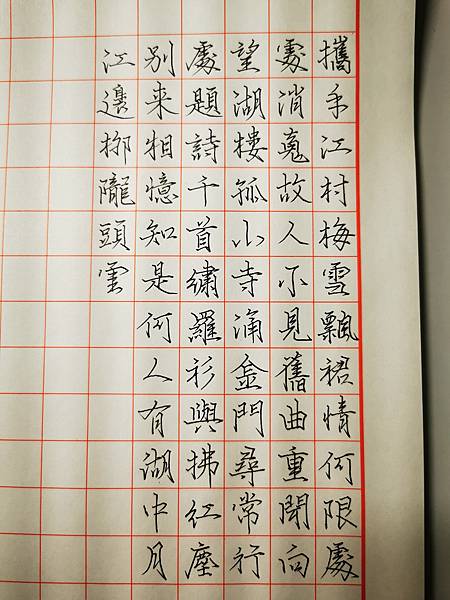 攜手江村梅雪飄裙情何限處
處消魂故人不見舊曲重聞向
望湖樓孤山寺涌金門尋常行
處題詩千首繡羅衫與拂紅塵
別来相憶知是何人有湖中月
江邊柳隴頭雲